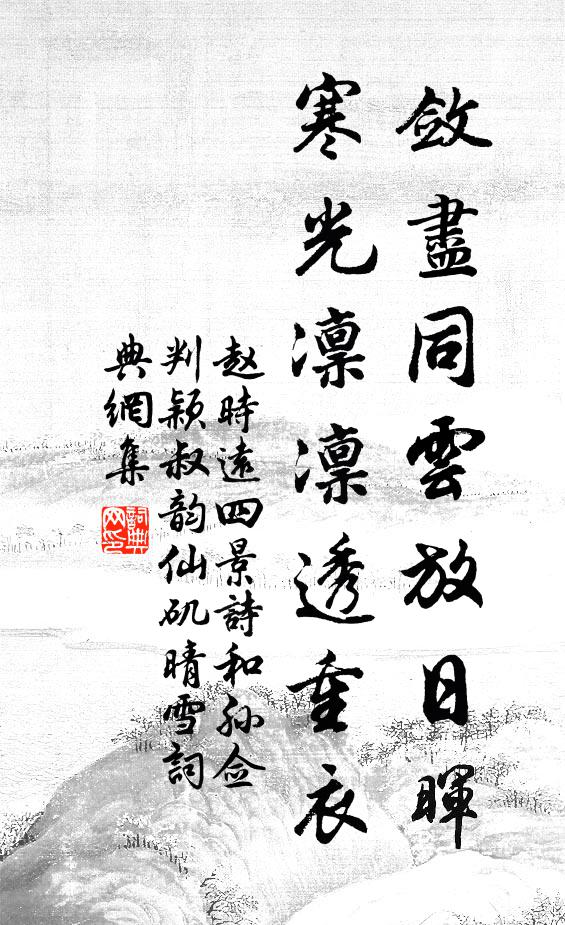 斂盡同雲放日暉
寒光凜凜透重衣
赵時遠四景詩和孙佥
判穎叔韵仙矶晴雪詞
典網集
詞典网印